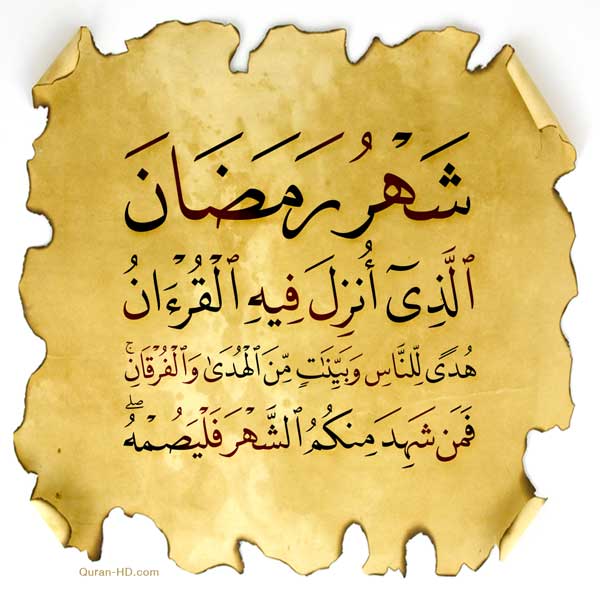 شَهْرُ رَمَضَانَ
ٱلَّذِىٓ أُنزِلَ فِيهِ ٱلْقُرْءَانُ
هُدًى لِّلنَّاسِ وَبَيِّنَٰتٍ مِّنَ ٱلْهُدَىٰ وَٱلْفُرْقَانِ ۚ
فَمَن شَهِدَ مِنكُمُ ٱلشَّهْرَ فَلْيَصُمْهُ ۖ
Quran-HD.com